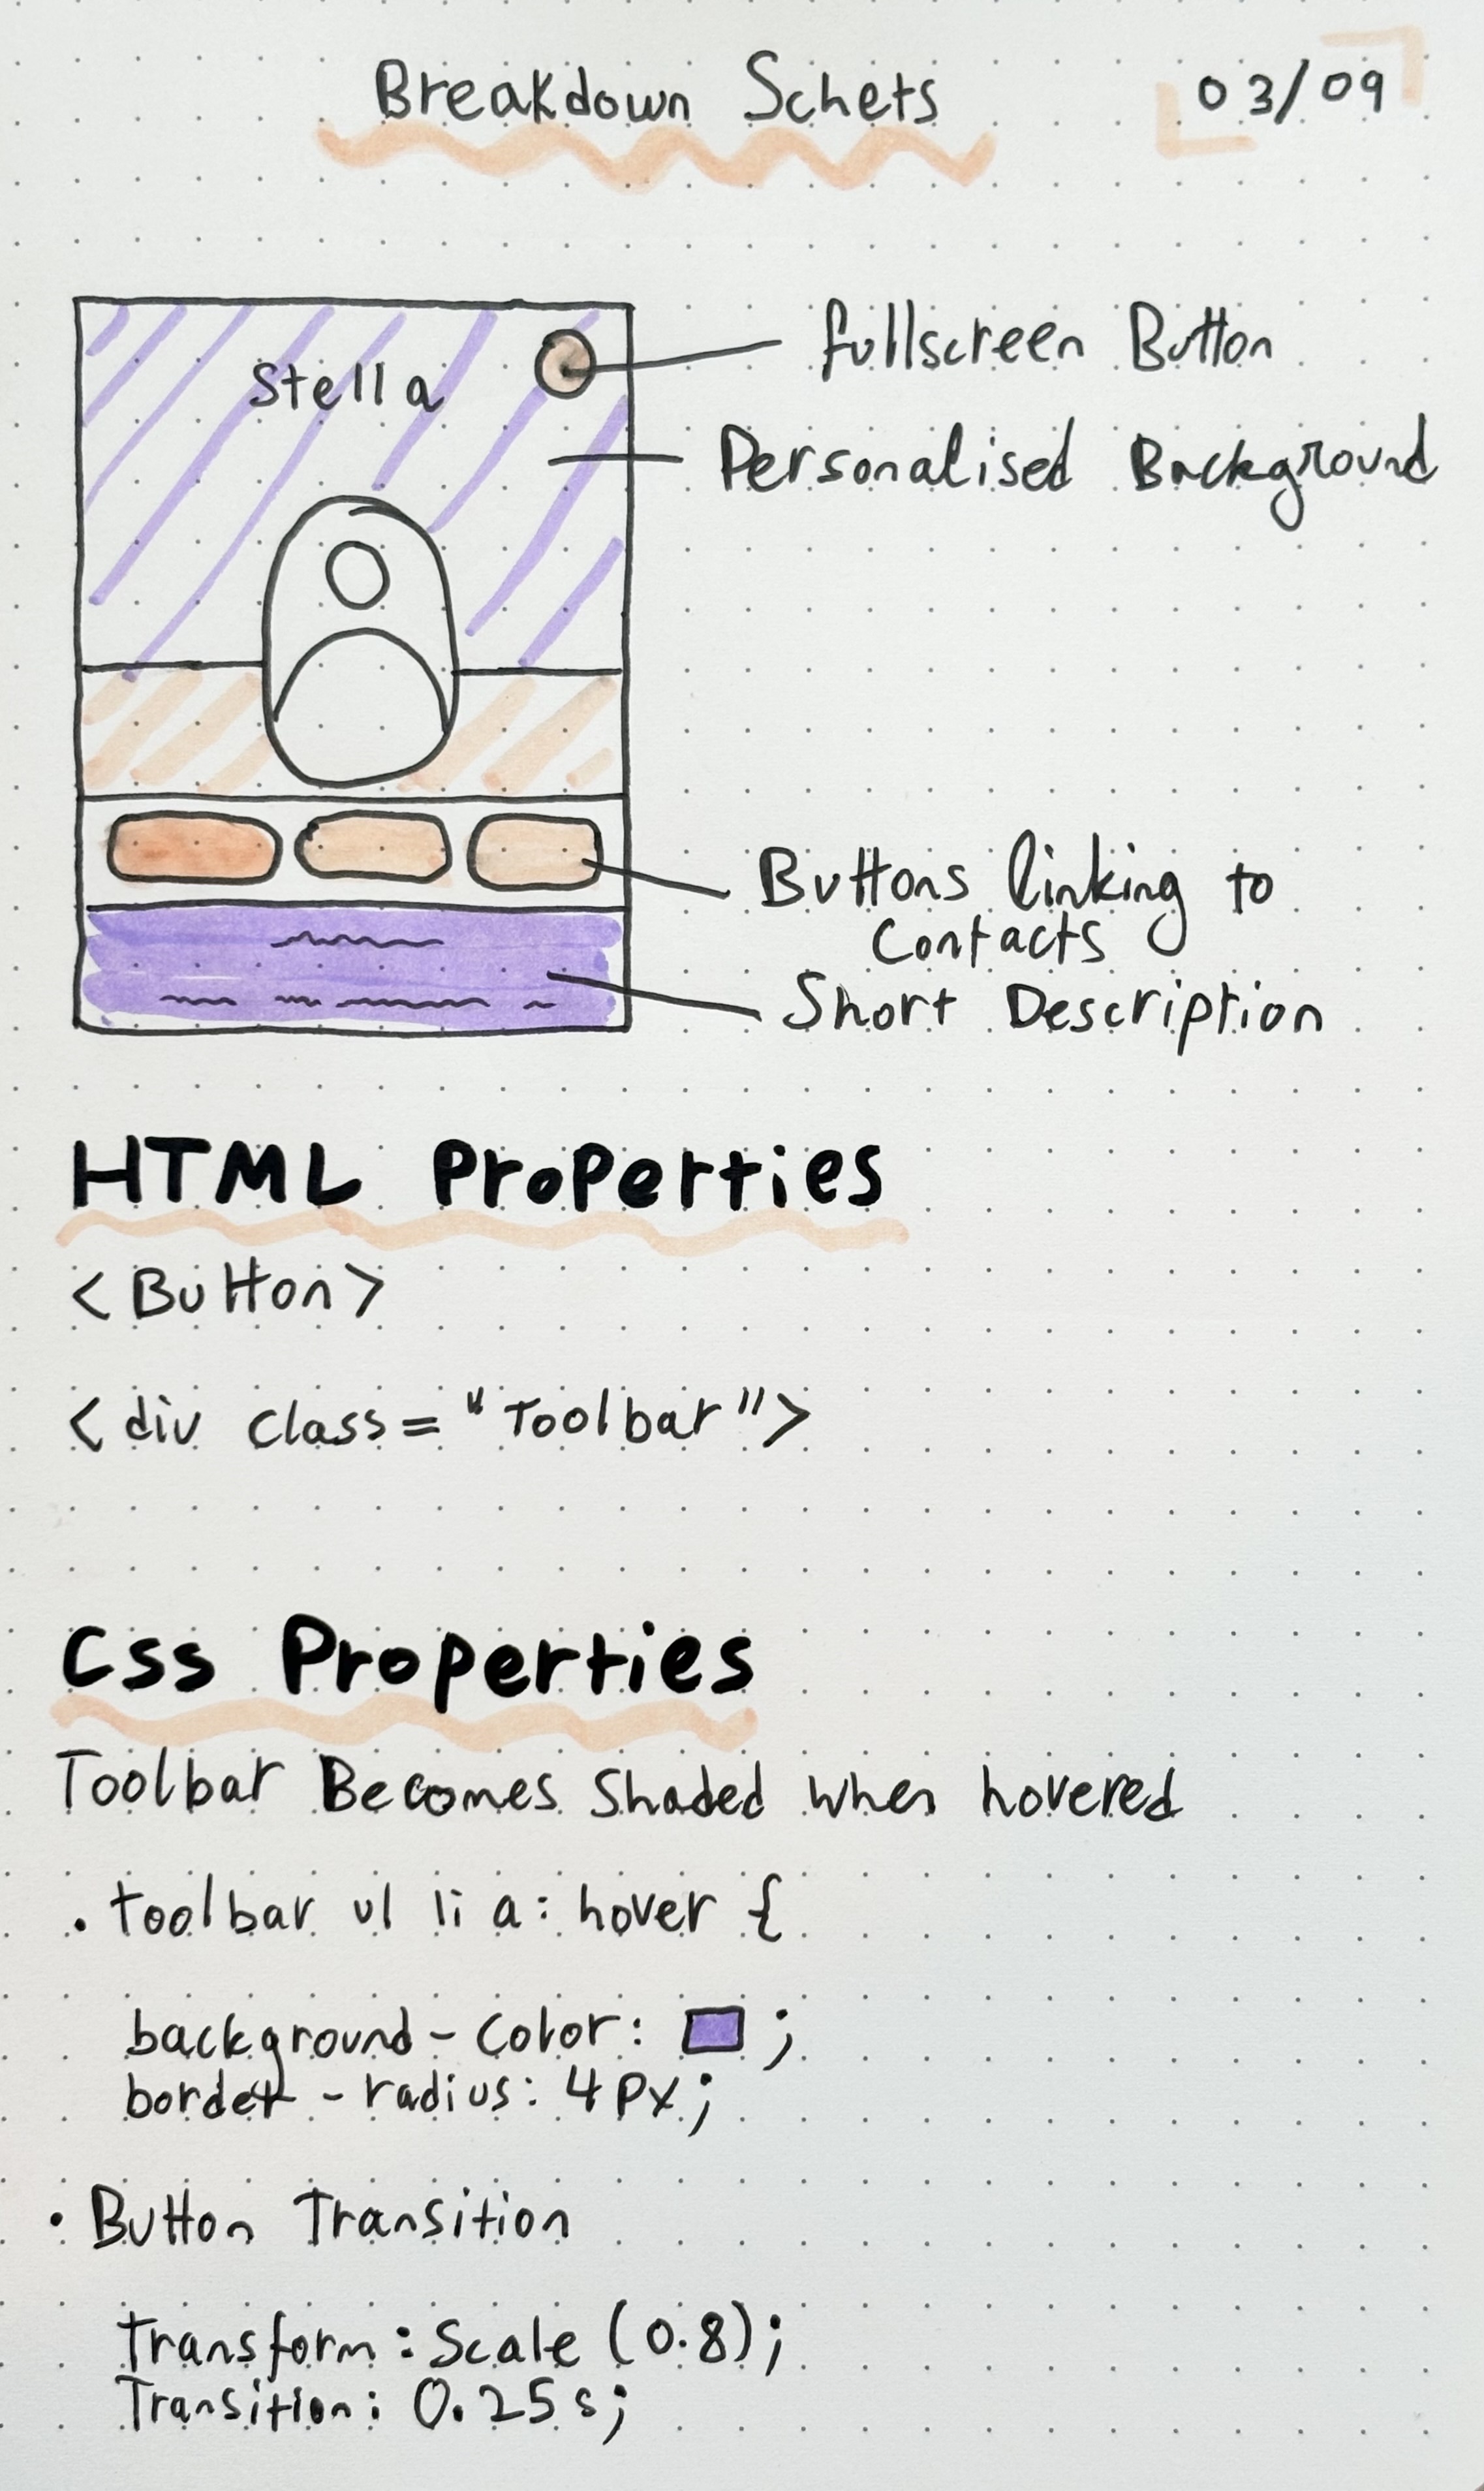 Breakdown Schets
03/09
Stella
fullscreen Button
Personalised Background
Buttons linking to
Contacts
Short Description
HTML Properties
<Button>
<div class="Toolbar">
Css Properties
Toolbar Becomes Shaded when hovered
.toolbar ul li a:hover {
background-color: ;
border-radius: 4px;
• Button Transition
Transform: Scale (0.8);
Transition: 0.25s;